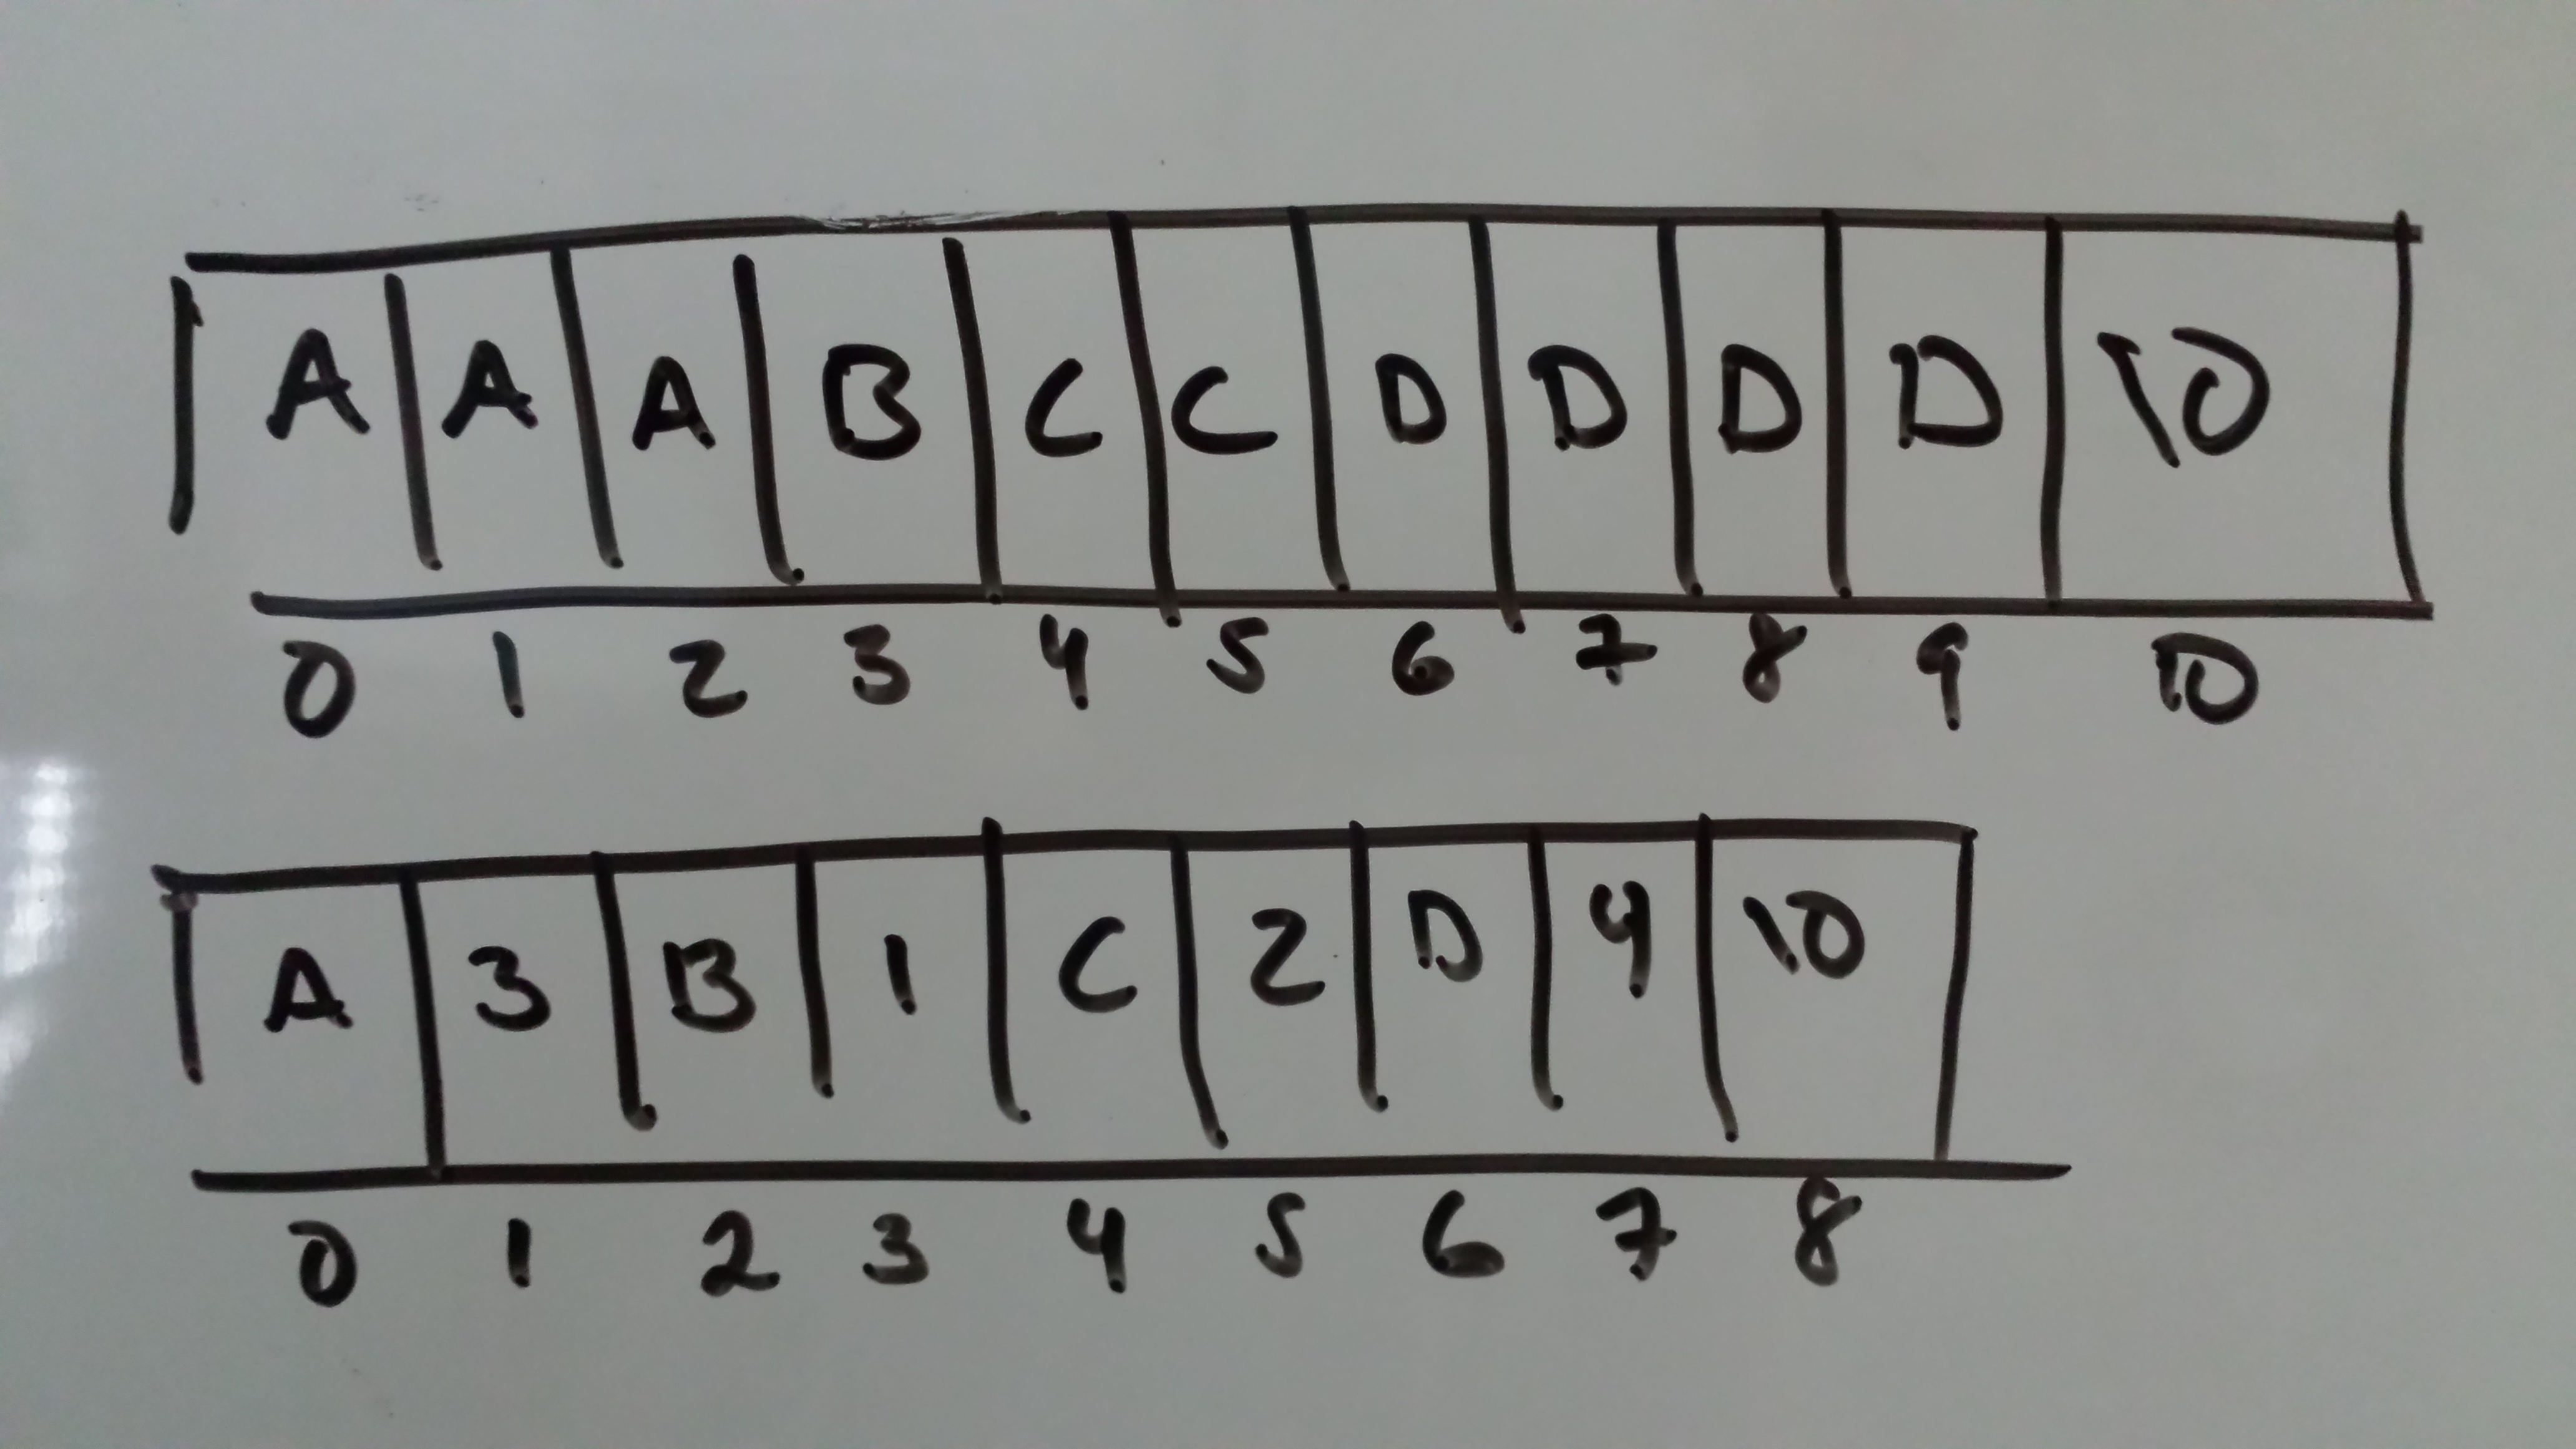 A A A B C C D D D D 10
0 1 2 3 4 5 6 7 8 9 10
A 3 B 1 C 2 D 4 10
0 1 2 3 4 5 6 7 8